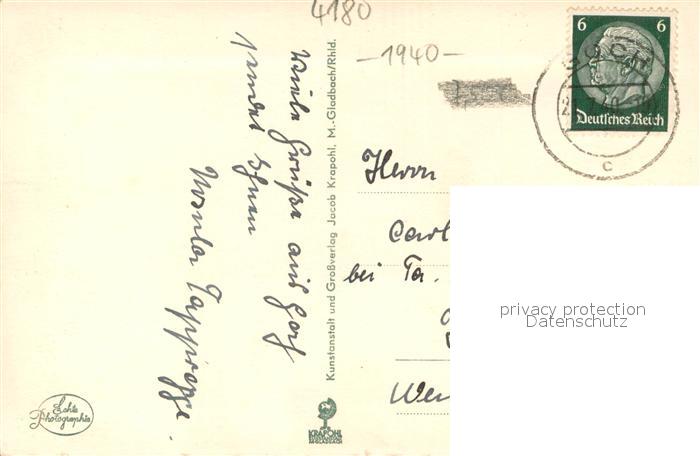 4180
-1940-
6 6
Deutsches Reich
c
viele Grüße aus Goch
sendet Ihnen
Ursula Tappesser.
Kunstanstalt und Großverlag Jacob Krapohl, M.-Gladbach/Rhld.
Herrn
Carl
bei Fa.
Wer
privacy protection
Datenschutz
Echte
Photographie
KRAPOHL